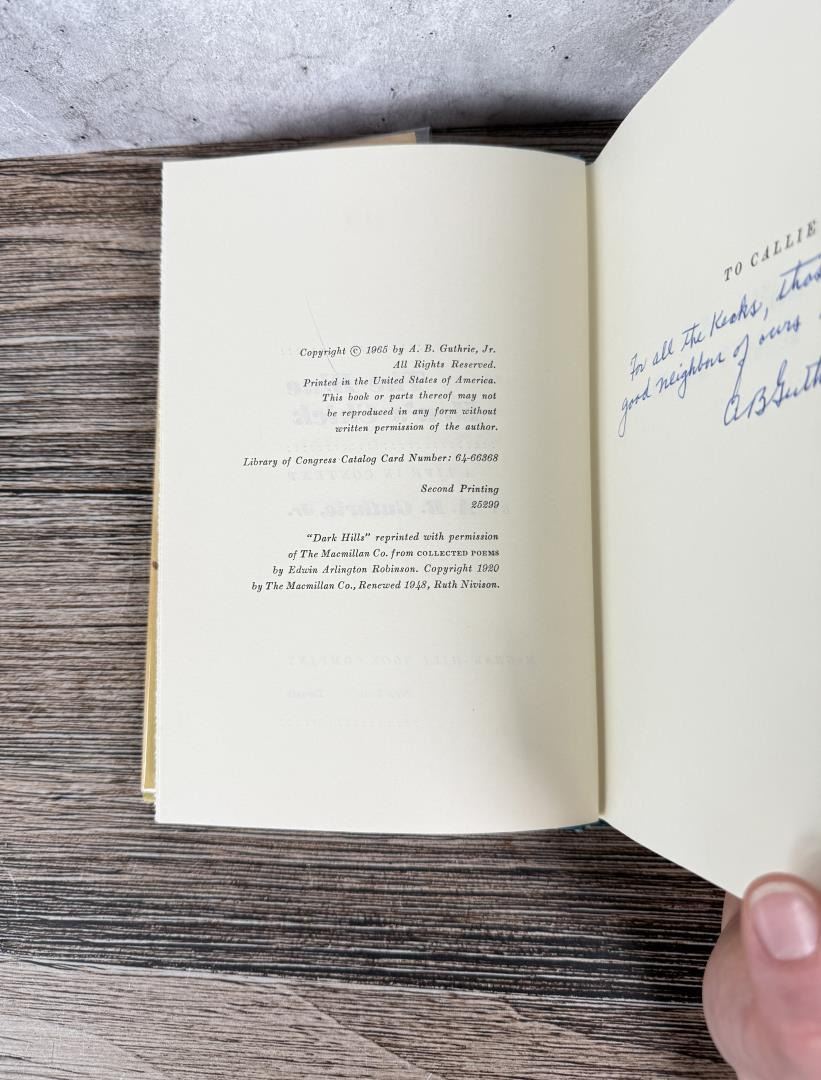 Copyright © 1965 by A. B. Guthrie, Jr.
All Rights Reserved.
Printed in the United States of America.
This book or parts thereof may not
be reproduced in any form without
written permission of the author.
Library of Congress Catalog Card Number: 64-66368
Second Printing
25299
"Dark Hills" reprinted with permission
of The Macmillan Co. from COLLECTED POEMS
by Edwin Arlington Robinson. Copyright 1920
by The Macmillan Co., Renewed 1948, Ruth Nivison.
TO CALLIE
For all the
good neighbors of ours
A B Guth